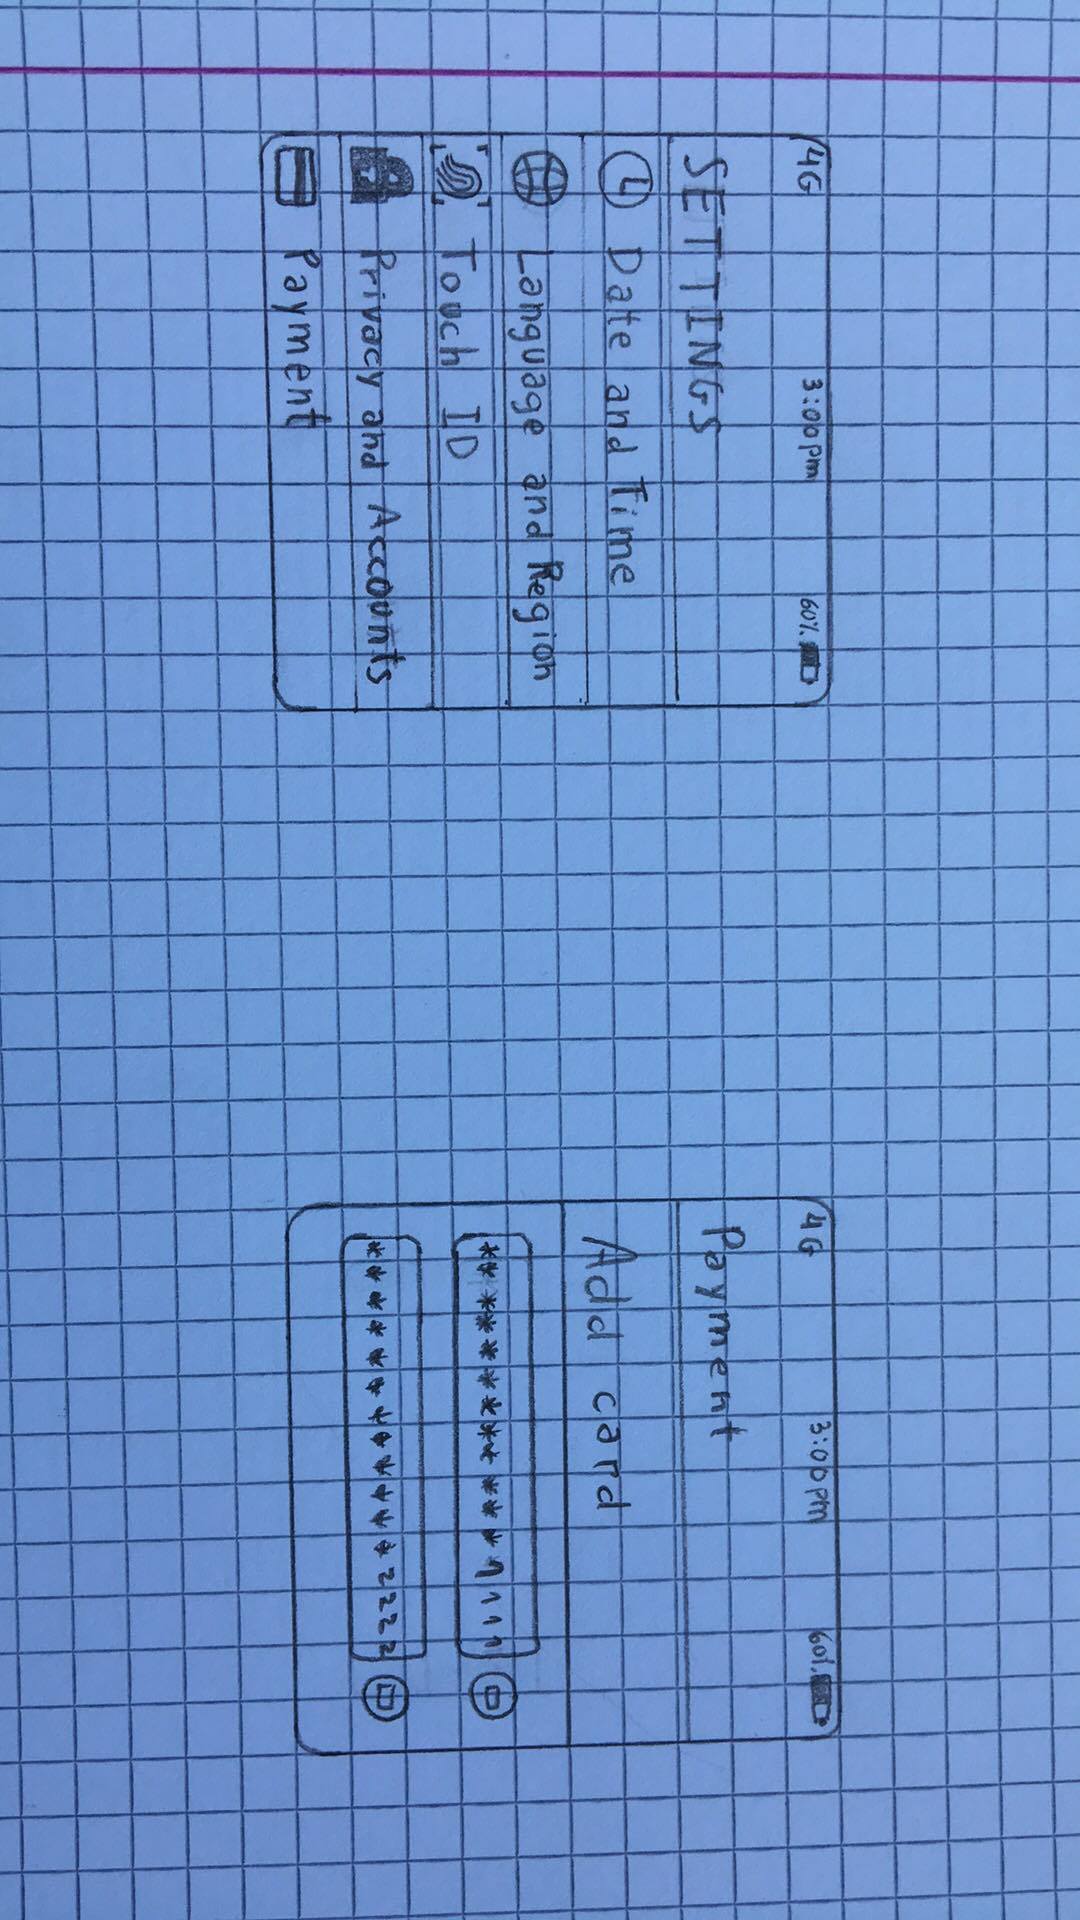 4G 3:00pm 60%
SETTINGS
Date and Time
Language and Region
Touch ID
Privacy and Accounts
Payment
4G 3:00pm 60%
Payment
Add card
************1111
************2222